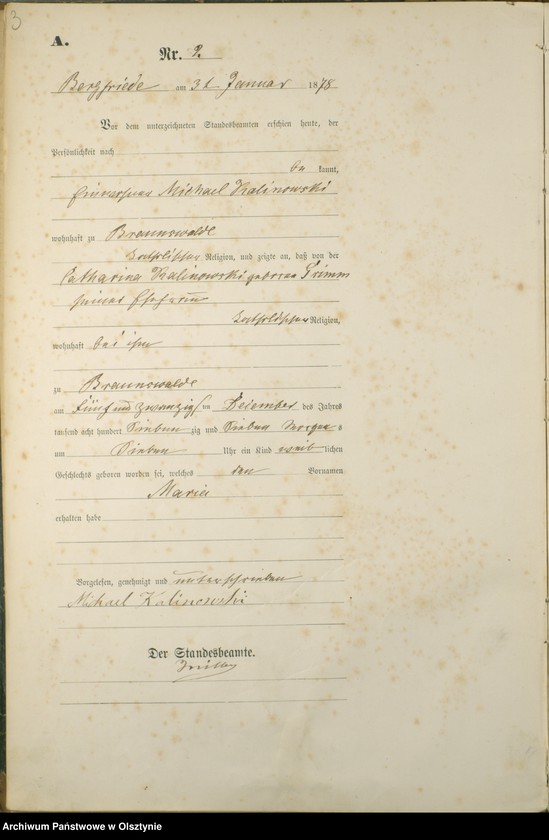 3
A.
Nr. 2.
Bergfriede am 31 Januar 1878
Vor dem unterzeichneten Standesbeamten erschien heute, der
Persönlichkeit nach
be kannt,
Einwohner Michael Kalinowski
wohnhaft zu Braunswalde
katholischer Religion, und zeigte an, daß von der
Catharina Kalinowski geborene Grimm
seiner Ehefrau
katholischer Religion,
wohnhaft bei ihm
zu Braunswalde
am fünf und zwanzigsten Dezember des Jahres
tausend acht hundert Sieben zig und Sieben Morgens
um Sieben Uhr ein Kind weib lichen
Geschlechts geboren worden sei, welches den Vornamen
Maria
erhalten habe
Vorgelesen, genehmigt und unterschrieben
Michael Kalinowski
Der Standesbeamte.
Archiwum Państwowe w Olsztynie